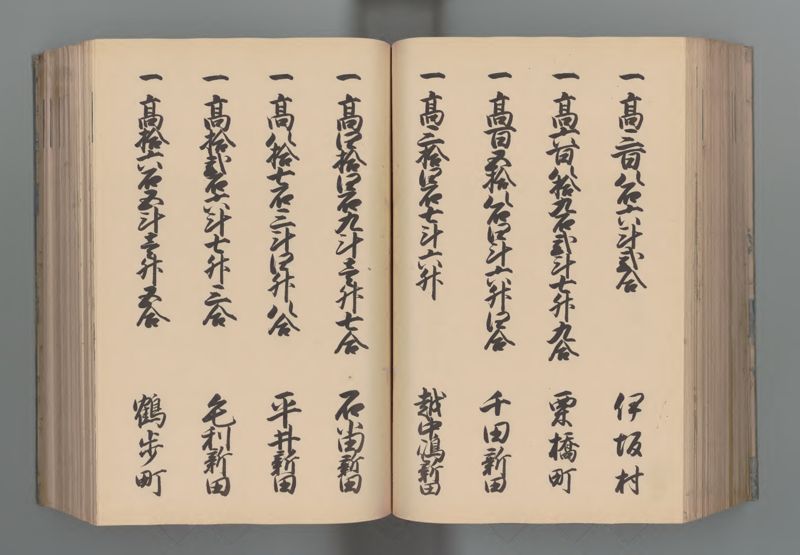 一 高三百八石六斗弐合 伊坂村
一 高六百八拾五石弐斗七升九合 栗橋町
一 高百五拾八石四斗六升四合 千田新田
一 高二拾四石七斗六升 越中嶋新田
一 高四拾四石九斗壱升七合 石笛新田
一 高八拾七石三斗四升八合 平井新田
一 高拾弐石六斗七升三合 毛利新田
一 高拾六石五斗壱升五合 鶴歩町